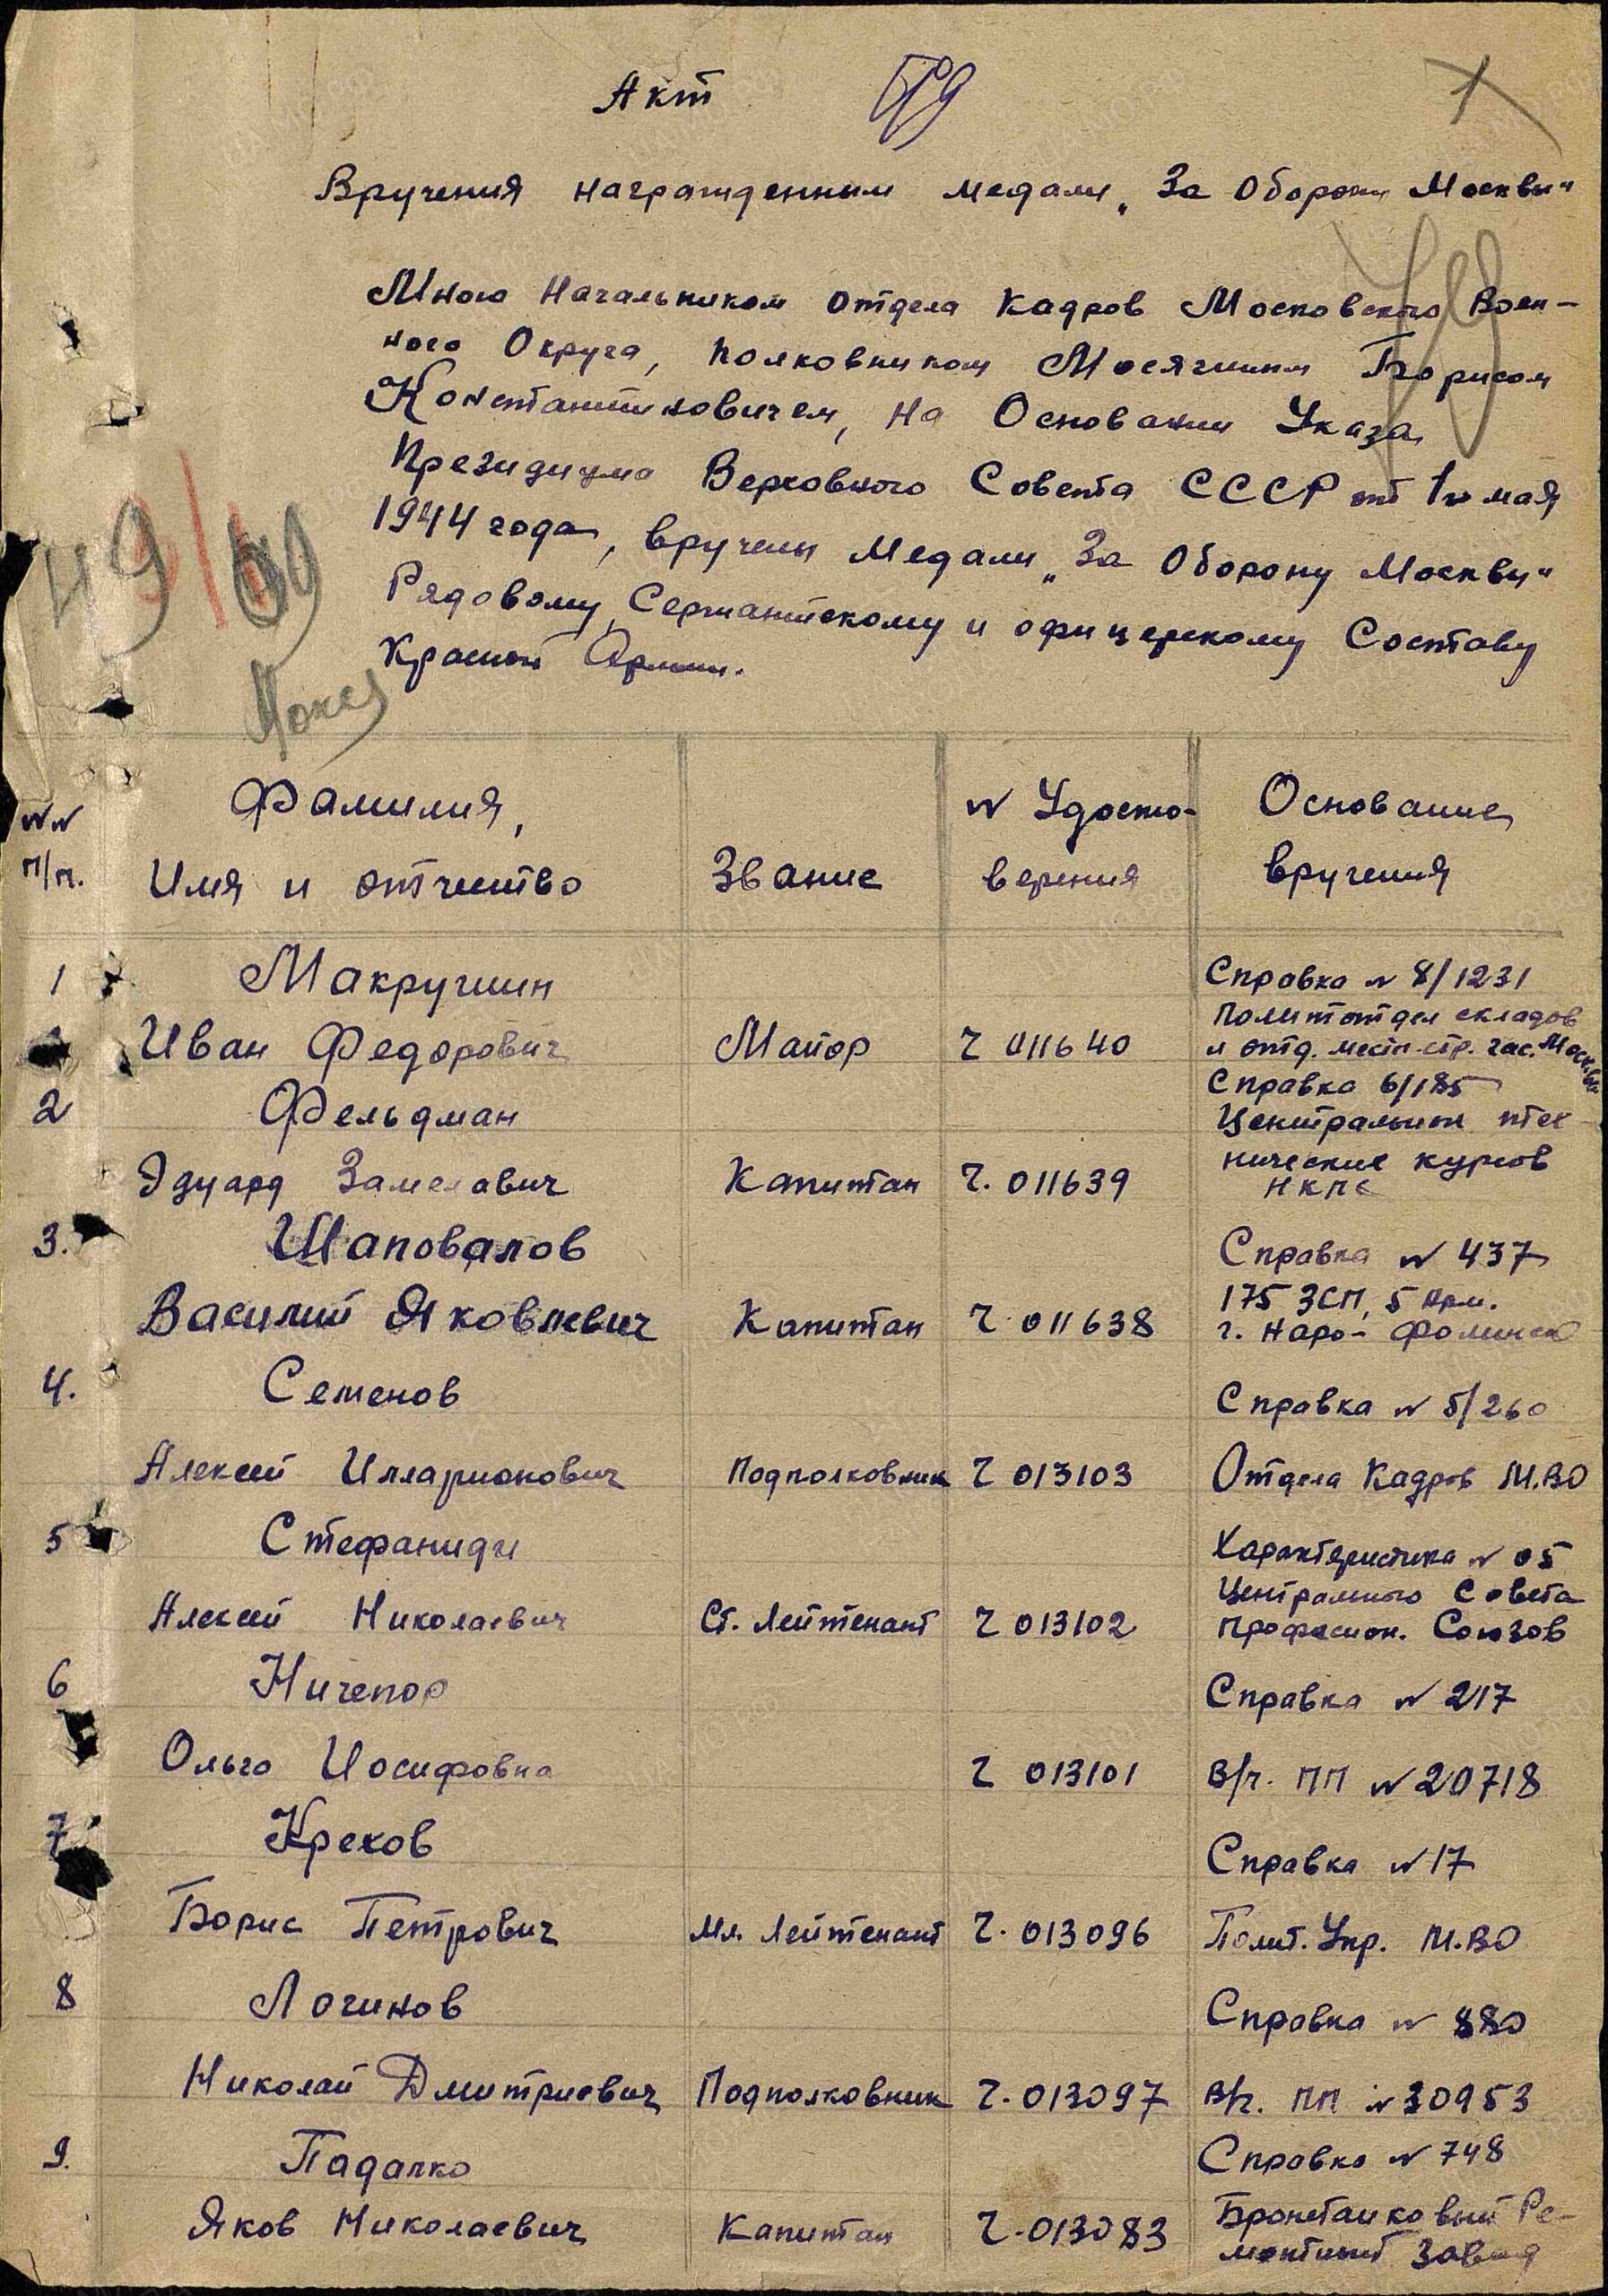 Акт
Вручения награжденным медали „За Оборону Москвы"
Мною Начальником отдела Кадров Московского Воен-
ного Округа, полковником Мосягиным Борисом
Константиновичем, на Основании Указа
Президиума Верховного Совета СССР от 1го мая
1944 года, вручены Медали „За Оборону Москвы"
Рядовому, Сержантскому и офицерскому Составу
Красной Армии.
49/
№№ п/п.
Фамилия,
Имя и отчество
Звание
№ Удосто-
верения
Основание
вручения
1 Макрушин Справка № 8/1231
Политотдел складов
Иван Федорович Майор Ч 011640 и отд. мест. стр. час. Москвы
Справка 6/185
2 Фельдман Центральных тех-
нические курсов
Эдуард Капитан Ч. 011639 НКПС
3. Шаповалов Справка № 437
175 ЗСП, 5 Арм.
Василий Яковлевич Капитан Ч. 011638 г. Наро-Фоминск
4. Семенов Справка № 5/260
Алексей Илларионович Подполковник Ч 013103 Отдела Кадров М.ВО
5 Стефаниди Характеристика № 05
Центрального Совета
Алексей Николаевич Ст. Лейтенант Ч 013102 Професион. Союзов
6 Ничепор Справка № 217
Ольга Иосифовна Ч 013101 В/ч. ПП № 20718
7 Креков Справка № 17
Борис Петрович Мл. Лейтенант Ч. 013096 Полит. Упр. М.ВО
8 Логинов Справка № 880
Николай Дмитриевич Подполковник Ч. 013097 В/ч. ПП № 30953
9. Падалко Справка № 748
Яков Николаевич Капитан Ч. 013083 Бронетанковый Ре-
монтный Завод